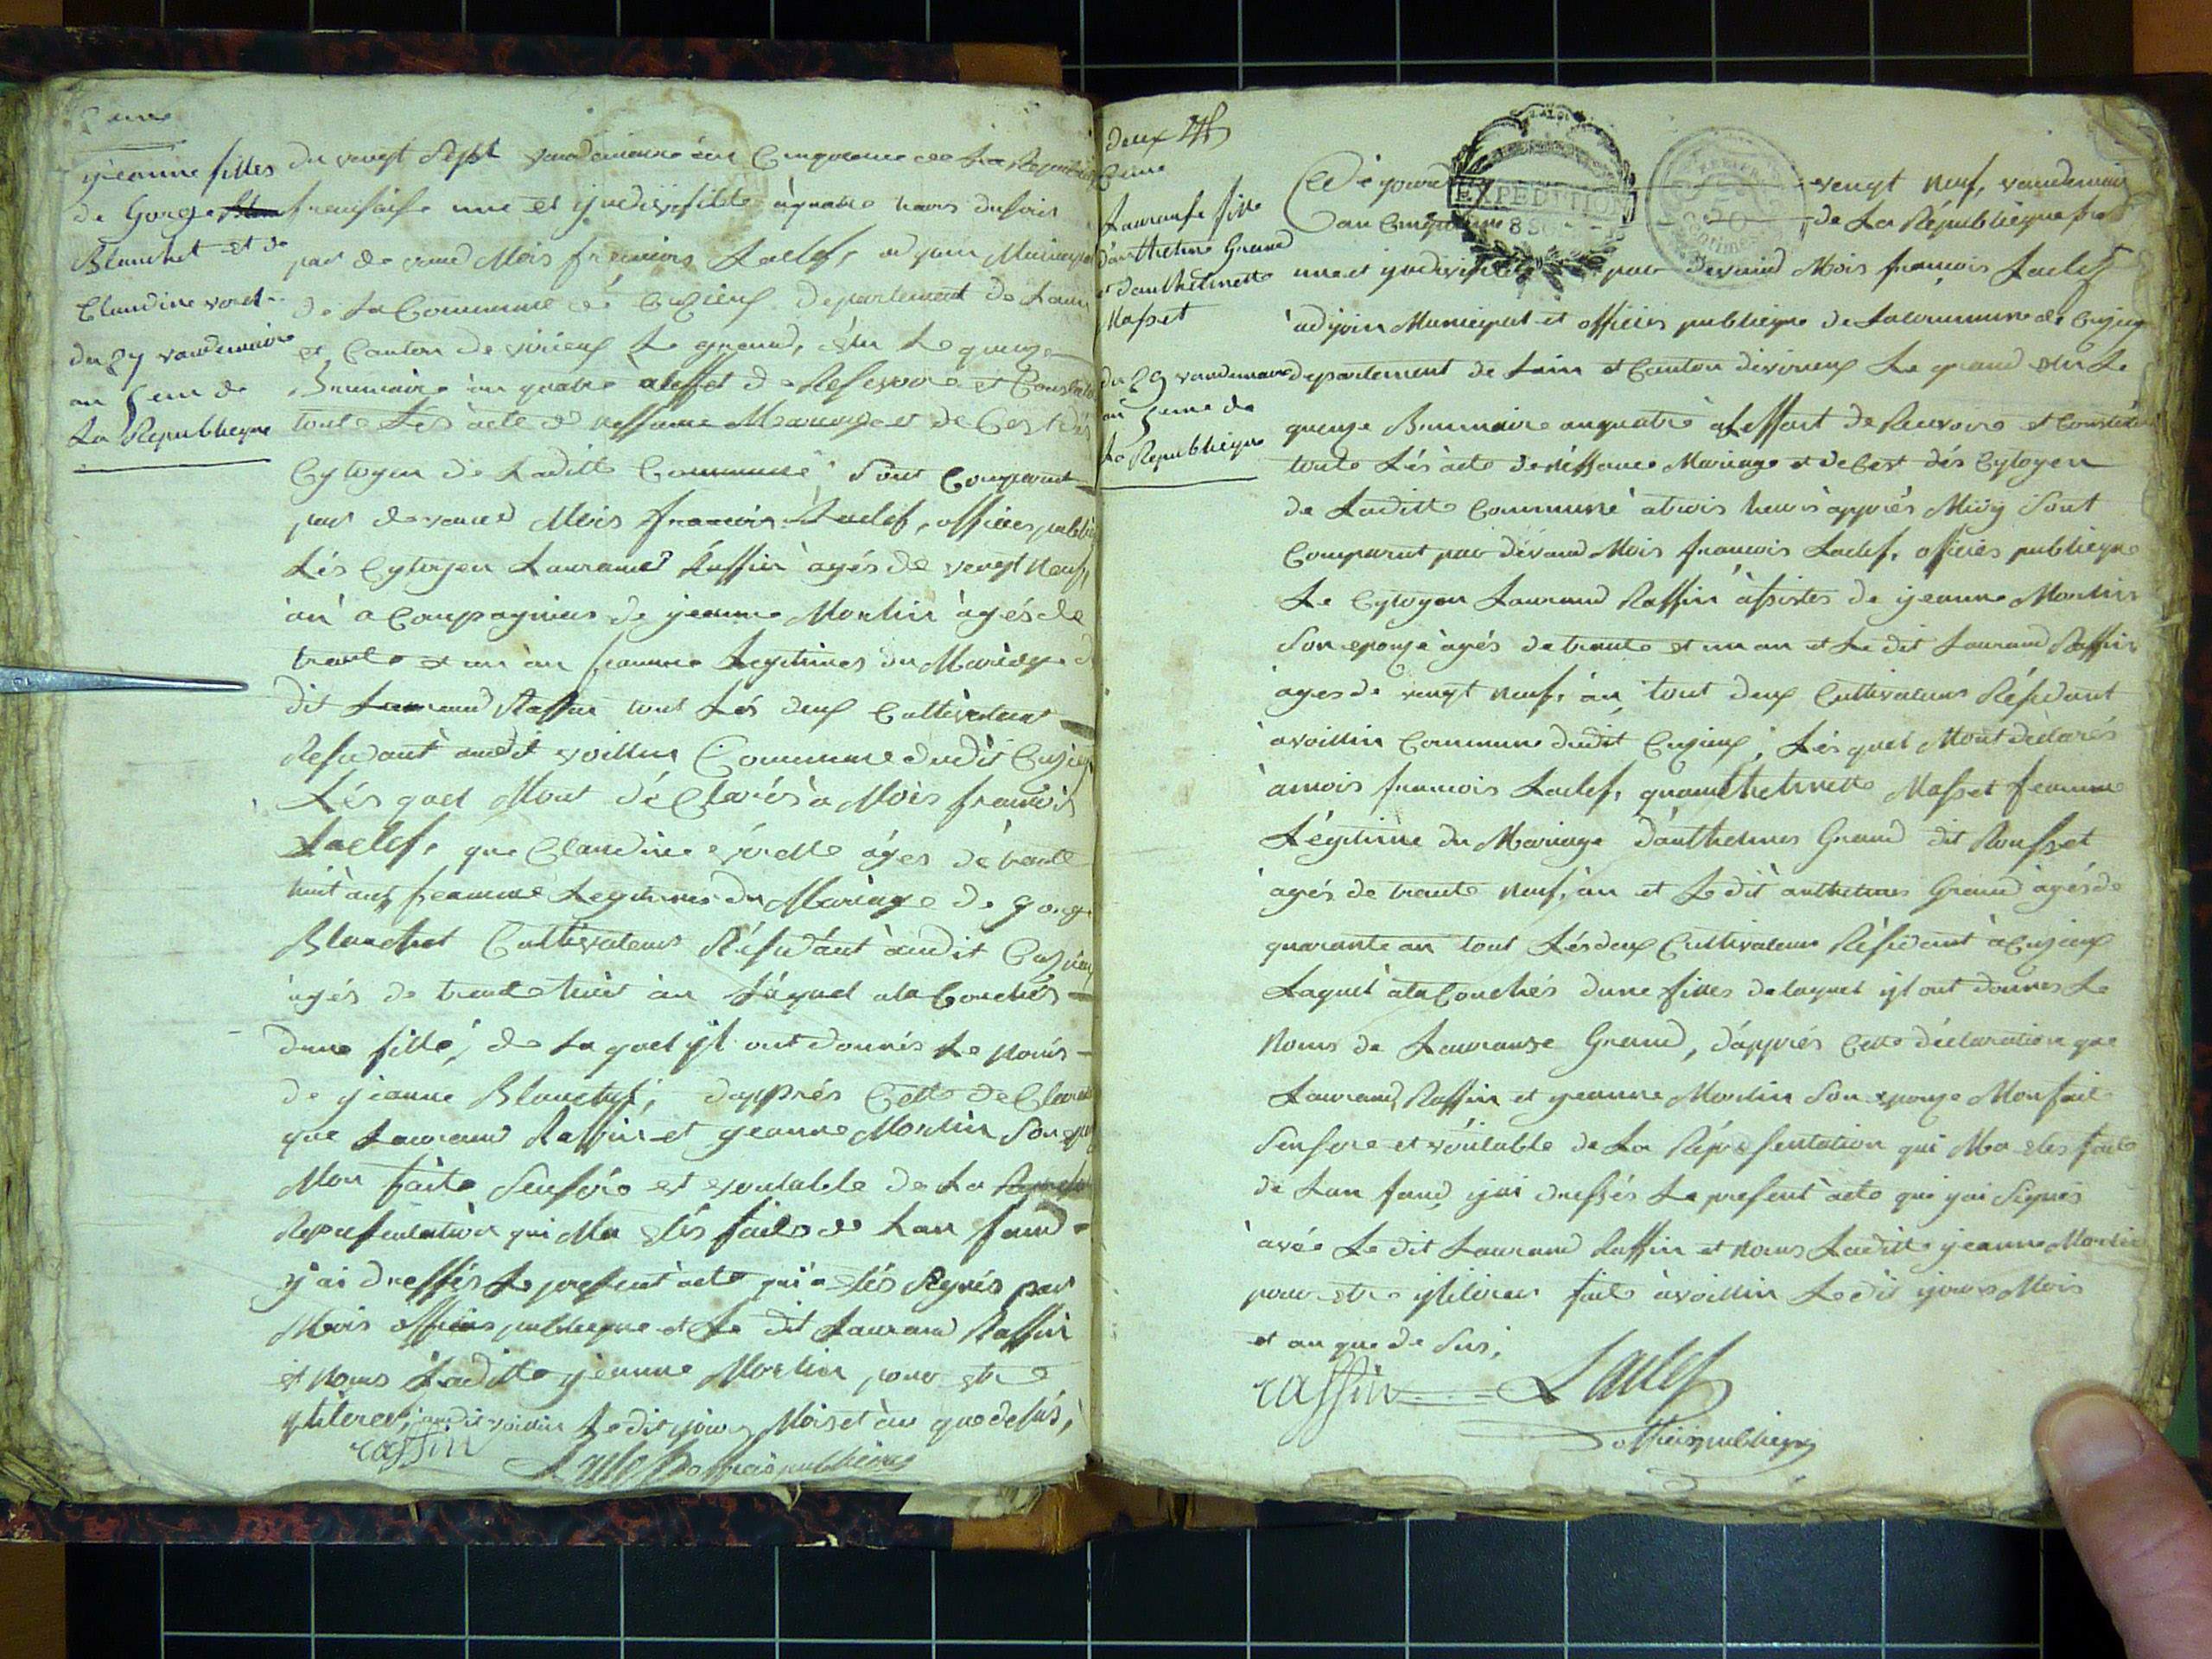 2eme
yjeanne filles
de Gorge
Blanchet et de
Claudine verd..
du 27 vandemaire
an 5 eme de
La Republieque
du vengt Sept vandemaire an Cinquieme de La Republi
fransaise une et yndivisiblle à quatre heurs du soir
par de vand Mois francois Laclef, adjoin Municipal
de La Commune de Cuzieux departement de Lain
et Canton de virieux Le grand, élu Le quenze
Brumaire an quatre à leffet de Resevoire et Constater
toute Les acte de nessance Mariage et de Ces dés
Cytoyen de Laditte Commune, Sont Comparut
par de vand Mois francois Laclef, officies publie
Lés Cytoyen Laurand Raffin àgés de vengt neuf,
an aCompagnies de jeanne Morlin àgés de
trante et un an feamme Legitimes du Mariage d
dit Laurand Raffin tout Lés deux Cultivateur
Residant audit voillin Commune dudit Cuzieu
Lés quel Mont déClarés à Mois francois
Laclef, que Claudine verdlle àges de trante
huit ans feamme Legitimes du Mariage de gorge
Blanchet Cultivateur Résidant audit Cuzieu
àgés de trante huit an Laquel ala Couchés
dune fille, de La quel yl ont donnés Le noms
de yjeanne Blanchet, dapprés Cette deClarat
que Laurand Raffin et yjeanne Morlin Son
Mon faite Sensere et veritable de La
Representation qui Ma étés faite de Lan fand
yjai dressés Le present acte qui a étés Signés par
Mois officies publieque et Le dit Laurand Raffin
et Nous Laditte yjeanne Morlin pour etre
ylliteres, audit voillin Le dit yjour Mois et an que desus,
raffin Laclef officies publieque
deux
2eme
Lauranse fille
d'anthelme Grand
et danthelmette
Masset
du 29 vandemaire
an 5 eme de
La Republieque
Ce yjourd vengt neuf, vandemair
an Cinquieme de La Républieque fra
une et yndivisible par devand Mois francois Laclef
àdjoin Municipal et officies publieque de La Commune de Cuzieux
departement de Lain et Canton de virieux Le grand elu Le
quenze Brumaire an quatre à leffait de Recevoire et Constater
toute Lés acte de néssance Mariage et deCes dés Cytoyen
de Laditte Commune à trois heurs apprés Midy Sont
Comparut par dévand Mois francois Laclef, officies publieque
Le Cytoyen Laurand Raffin àssistes de yjeanne Morlin
Son epouze àgés de trante et un an et Le dit Laurand Raffin
àges de vengt neuf, an, tout deux Cultivateurs Résidant
à voillin Commune dudit Cuzieux, Lés quel Mont déclarés
à mois francois Laclef, quanthelmette Masset feamme
Légitime du Mariage d'anthelmes Grand dit Rousset
àgés de trante neuf, an et Le dit anthelmes Grand àgés de
quarante an tout Lés deux Cultivateur Résidant à Cuzieux
Laquel ala Couchés dune filles de laquel yl ont donnes Le
Noms de Lauranse Grand, d'apprés Cette déclaration que
Laurand, Raffin et yjeanne Morlin Son epouze Mon fait
Sensere et véritable de La Répresentation qui Ma etes faite
de Lan fand, yjai dressés Le present acte qui yjai Signés
àvée Le dit Laurand Raffin et Nous Laditte yjeanne Morlin
pour etre ylliteres fait à voillin Le dit yjours Mois
et an que de Sus,
raffin Laclef
officies publieque
EXPÉDITION
50
Centimes